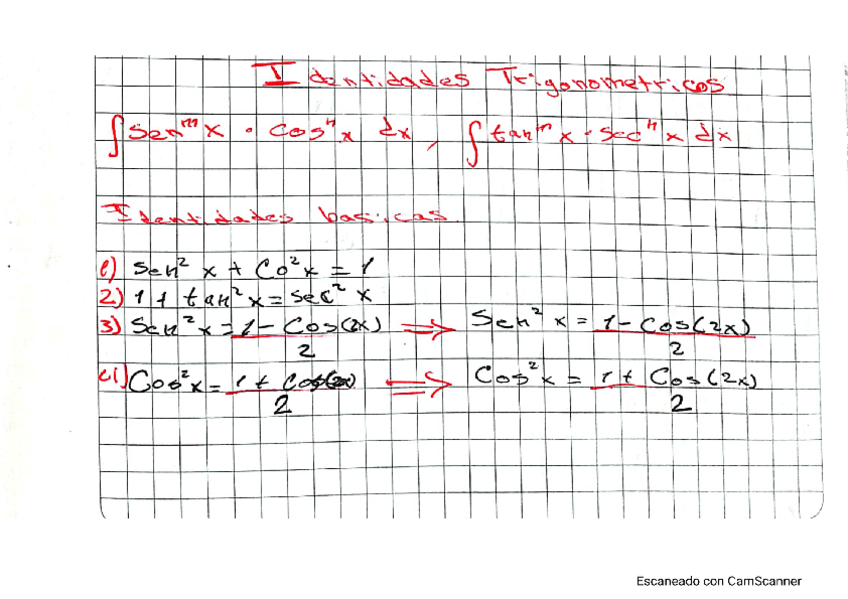 Identidades Trigonometricos
∫ Senᵐ x · Cosⁿ x dx, ∫ tanᵐ x · secⁿ x dx
Identidades basicas
1) Sen² x + Co² x = 1
2) 1 + tan² x = sec² x
3) Sen² x = 1 - Cos(2x) / 2 ⇒ Sen² x = 1 - Cos(2x) / 2
4) Cos² x = 1 + Cos(2x) / 2 ⇒ Cos² x = 1 + Cos(2x) / 2
Escaneado con CamScanner